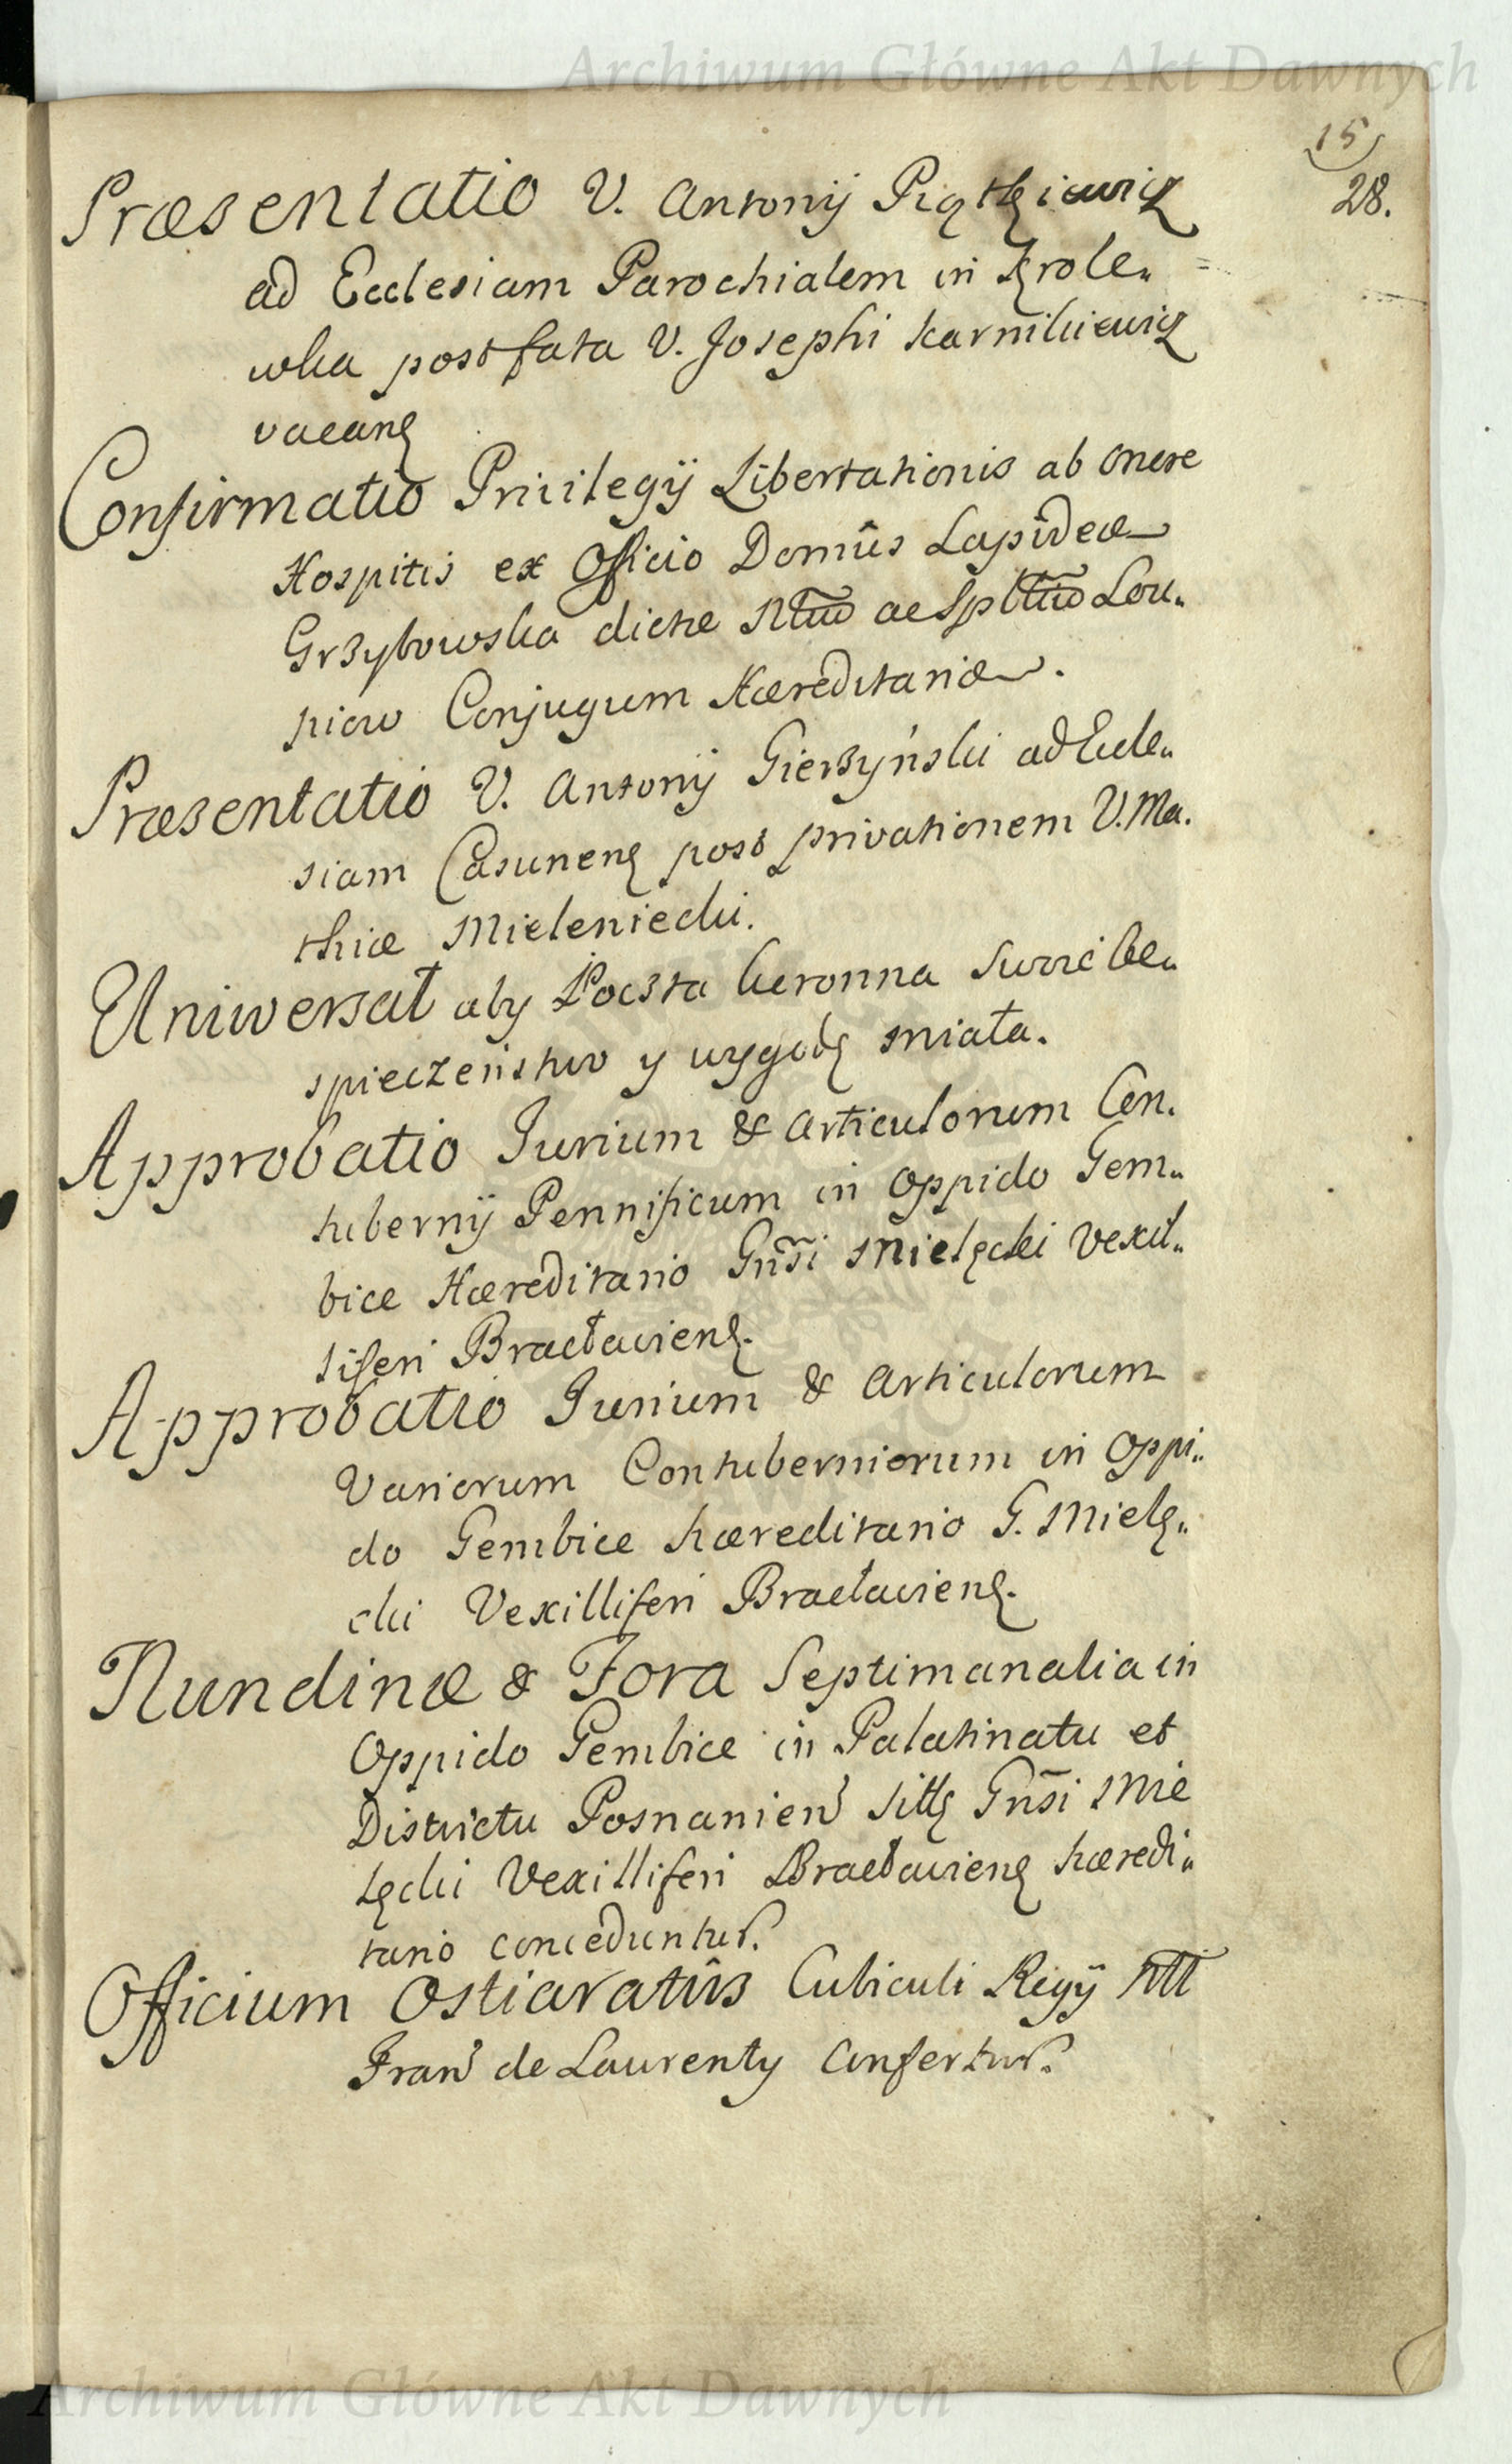 Archiwum Główne Akt Dawnych
15
28.
Præsentatio V. Antonij Piątkiewicz
ad Ecclesiam Parochialem in Krole„
wka post fata V. Josephi Karnikiewicz
vacanę
Confirmatio Privilegij Libertationis ab onere
Hospitis ex Officio Domûs Lapideæ
Grzybowska dictæ Ntũo ac Spltũo Lou„
piow Conjugum Hæreditariæ.
Præsentatio V. Antonij Gierzyński ad Eccle„
siam Casunenę post privationem V. Ma.
thiæ Mieleniecki.
Uniwersał aby Poczta koronna swoie be„
spieczeństwo y wygodę miała.
Approbatio Jurium & Articulorum Con.
tubernij Pennificum in Oppido Gem„
bice Hæreditario Gñsi Mielęcki Vexil„
liferi Bracłavienę.
Approbatio Jurium & Articulorum
Variorum Contuberniorum in Oppi„
do Gembice hæreditario G. Mielę„
cki Vexilliferi Bracłavienę.
Nundinæ & Fora Septimanalia in
Oppido Gembice in Palatinatu et
Districtu Posnanien sittę Gñsi Mie
lęcki Vexilliferi Bracłavienę hæredi„
tario conceduntur.
Officium Ostiaratûs Cubiculi Regij Ntt
Fran de Laurenty Confertur.
Archiwum Główne Akt Dawnych